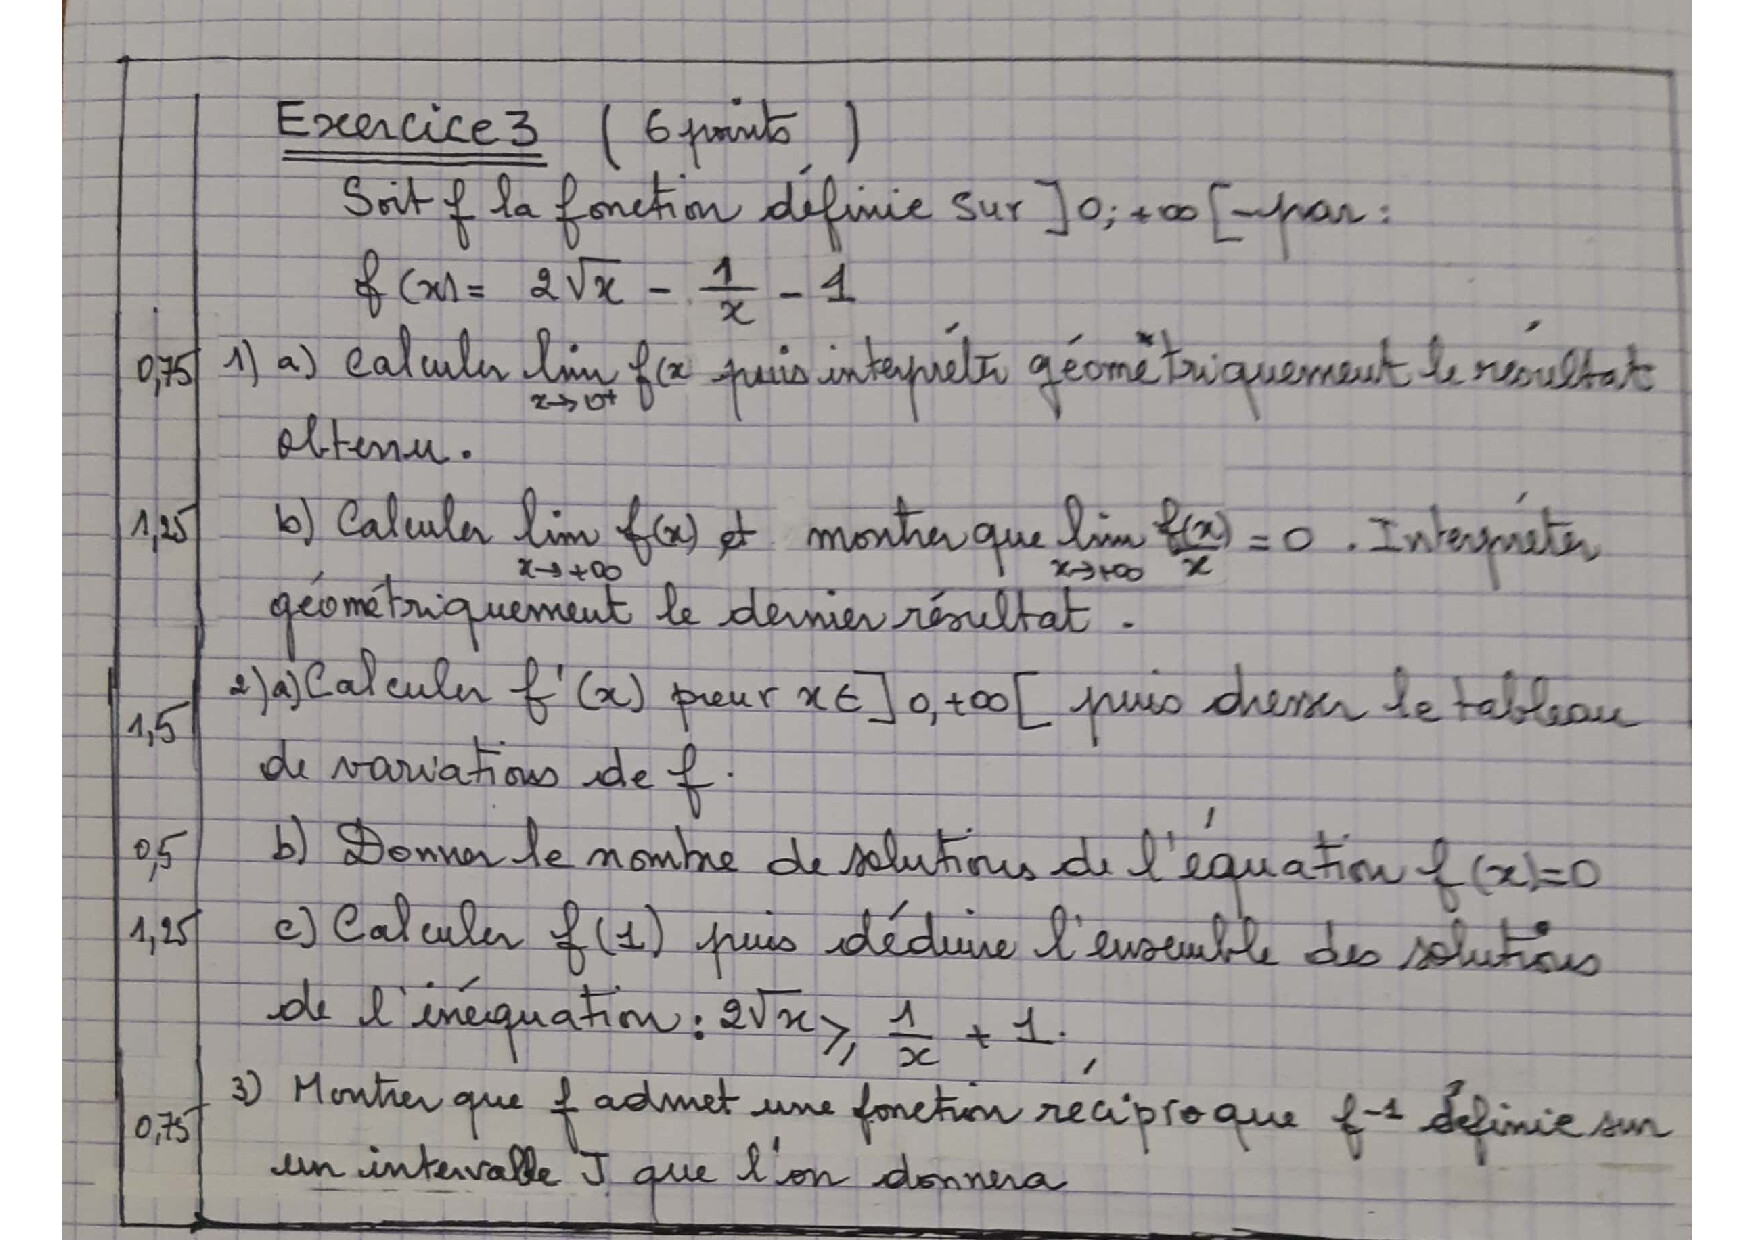 Exercice 3 ( 6 points )
Soit f la fonction définie sur ]0; +∞[ par :
f(x) = 2√x - 1/x - 1
0,75 1) a) Calculer lim x→0+ f(x puis interpréter géométriquement le résultat
obtenu.
1,25 b) Calculer lim x→+∞ f(x) et montrer que lim x→+∞ f(x)/x = 0 . Interpréter
géométriquement le dernier résultat .
1,5 2) a) Calculer f'(x) pour x ∈ ]0, +∞[ puis dresser le tableau
de variations de f.
0,5 b) Donner le nombre de solutions de l'équation f(x)=0
1,25 c) Calculer f(1) puis déduire l'ensemble des solutions
de l'inéquation : 2√x ≥ 1/x + 1.
0,75 3) Montrer que f admet une fonction réciproque f-1 définie sur
un intervalle J que l'on donnera